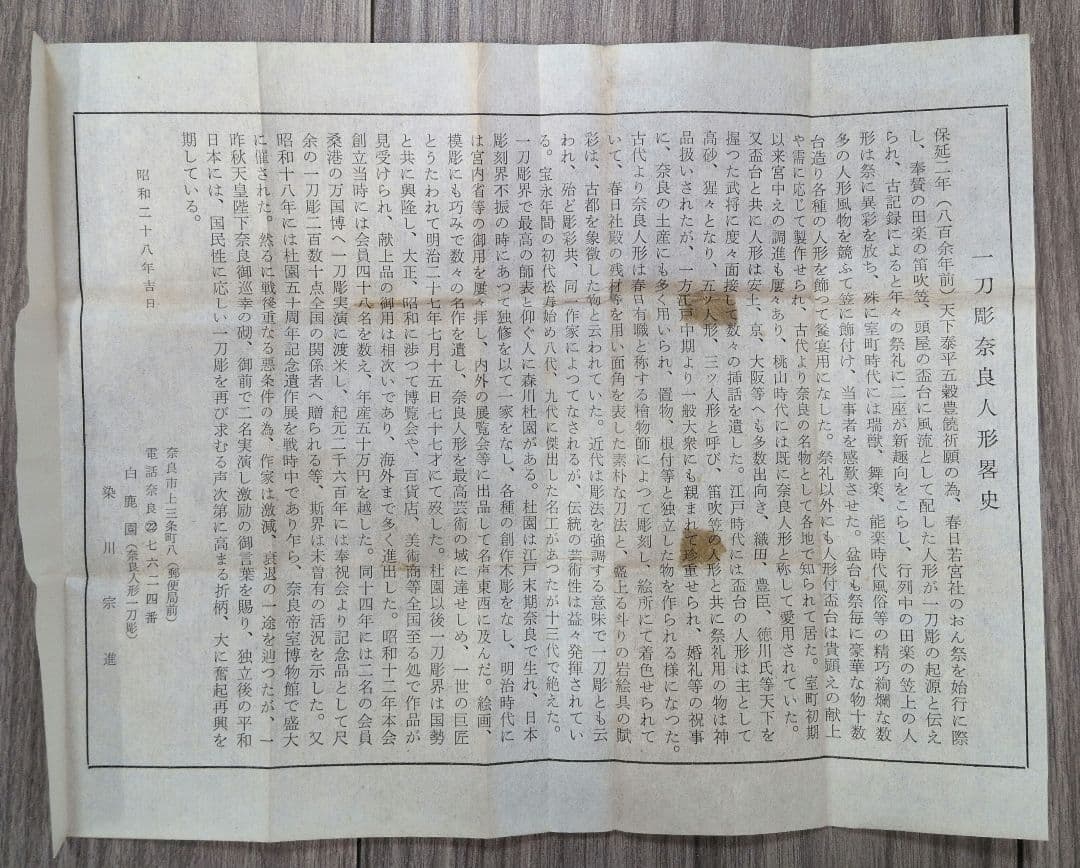 一刀彫奈良人形畧史
保延二年（八百余年前）天下泰平五穀豊饒祈願の為、春日若宮社のおん祭を始行に際
し、奉賛の田楽の笛吹笠、頭屋の盃台に風流として配した人形が一刀彫の起源と伝え
られ、古記録によると年々の祭礼に二座が新趣向をこらし、行列中の田楽の笠上の人
形は祭に異彩を放ち、殊に室町時代には瑞獣、舞楽、能楽時代風俗等の精巧絢爛な数
多の人形風物を競ふて笠に飾付け、当事者を感歎させた。盆台も祭毎に豪華な物十数
台造り各種の人形を飾つて饗宴用になした。祭礼以外にも人形付盃台は貴顕えの献上
や需に応じて製作せられ、古代より奈良の名物として各地で知られて居た。室町初期
以来宮中えの調進も屢々あり、桃山時代には既に奈良人形と称して愛用されていた。
又盃台と共に人形は安土、京、大阪等へも多数出向き、織田、豊臣、徳川氏等天下を
握つた武将に度々面接して数々の挿話を遺した。江戸時代には盃台の人形は主として
高砂、猩々となり、五ツ人形、三ツ人形と呼び、笛吹笠の人形と共に祭礼用の物は神
品扱いされたが、一方江戸中期より一般大衆にも親まれて珍重せられ、婚礼等の祝事
に、奈良の土産にも多く用いられ、置物、根付等と独立した物を作られる様になつた。
古代より奈良人形は春日有職と称する檜物師によつて彫刻し、絵所にて着色せられて
いて、春日社殿の残材等を用い面角を表した素朴な刀法と、盛上る斗りの岩絵具の賦
彩は、古都を象徴した物と云われていた。近代は彫法を強調する意味で一刀彫とも云
われ、殆ど彫彩共、同一作家によつてなされるが、伝統の芸術性は益々発揮されてい
る。宝永年間の初代松寿始め八代、九代に傑出した名工があつたが十三代で絶えた。
一刀彫界で最高の師表と仰ぐ人に森川杜園がある。杜園は江戸末期奈良で生れ、日本
彫刻界不振の時にあつて独修を以て一家をなし、各種の創作木彫をなし、明治時代に
は宮内省等の御用を屢々拝し、内外の展覧会等に出品して名声東西に及んだ。絵画、
模彫にも巧みで数々の名作を遺し、奈良人形を最高芸術の域に達せしめ、一世の巨匠
とうたわれて明治二十七年七月十五日七十七才にて歿した。杜園以後一刀彫界は国勢
と共に興隆し、大正、昭和に渉つて博覧会や、百貨店、美術商等全国至る処で作品が
見受けられ、献上品の御用は相次いであり、海外まで多く進出した。昭和十二年本会
創立当時には会員四十八名を数え、年産五十万円を越した。同十四年には二名の会員
桑港の万国博へ一刀彫実演に渡米し、紀元二千六百年には奉祝会より記念品として尺
余の一刀彫二百数十点全国の関係者へ贈られる等、斯界は未曽有の活況を示した。又
昭和十八年には杜園五十周年記念遺作展を戦時中であり乍ら、奈良帝室博物館で盛大
に催された。然るに戦後重なる悪条件の為、作家は激減、衰退の一途を辿つたが、一
昨秋天皇陛下奈良御巡幸の砌、御前で二名実演し激励の御言葉を賜り、独立後の平和
日本には、国民性に応しい一刀彫を再び求むる声次第に高まる折柄、大に奮起再興を
期している。
昭和二十八年吉日
奈良市上三条町八（郵便局前）
電話奈良㉒七六二四番
白鹿園（奈良人形一刀彫）
染川宗進